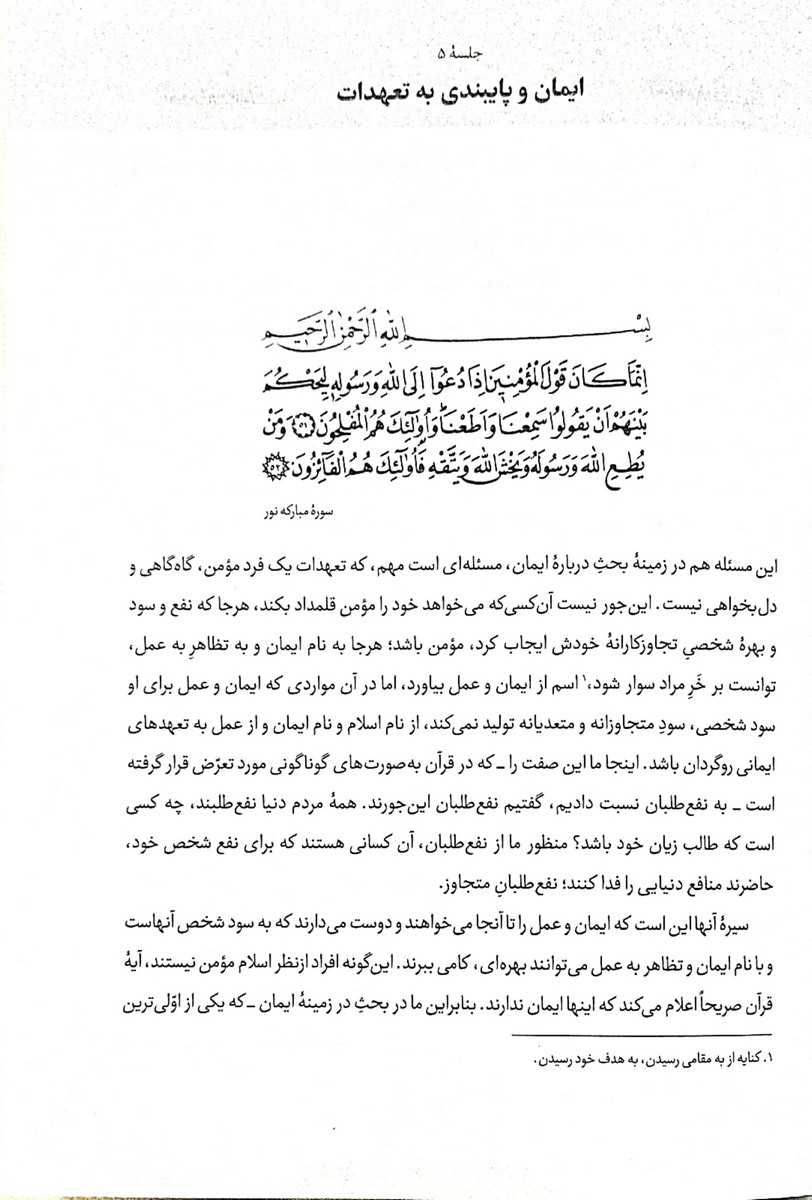 جلسهٔ ۵
ایمان و پایبندی به تعهدات
بِسْمِ اللهِ الرَّحْمٰنِ الرَّحیمِ
اِنَّمَا کَانَ قَوْلَ الْمُؤْمِنینَ اِذَا دُعُوٓا اِلَی اللهِ وَ رَسُولِهٖ لِیَحْکُمَ
بَیْنَهُمْ اَنْ یَقُولُوا سَمِعْنَا وَ اَطَعْنَاۚ وَ اُولٰٓئِكَ هُمُ الْمُفْلِحُونَ ﴿۵۱﴾ وَ مَنْ
یُطِعِ اللهَ وَ رَسُولَهُ وَ یَخْشَ اللهَ وَ یَتَّقْهِ فَاُولٰٓئِكَ هُمُ الْفَآئِزُونَ ﴿۵۲﴾
سورهٔ مبارکه نور
این مسئله هم در زمینهٔ بحثِ دربارهٔ ایمان، مسئله‌ای است مهم، که تعهدات یک فرد مؤمن، گاه‌گاهی و
دل‌بخواهی نیست. این‌جور نیست آن‌کسی‌که می‌خواهد خود را مؤمن قلمداد بکند، هرجا که نفع و سود
و بهرهٔ شخصیِ تجاوزکارانهٔ خودش ایجاب کرد، مؤمن باشد؛ هرجا به نام ایمان و به تظاهرِ به عمل،
توانست بر خَرِ مراد سوار شود،۱ اسم از ایمان و عمل بیاورد، اما در آن مواردی که ایمان و عمل برای او
سود شخصی، سودِ متجاوزانه و متعدیانه تولید نمی‌کند، از نام اسلام و نام ایمان و از عمل به تعهدهای
ایمانی روگردان باشد. اینجا ما این صفت را ـ که در قرآن به‌صورت‌های گوناگونی مورد تعرّض قرار گرفته
است ـ به نفع‌طلبان نسبت دادیم، گفتیم نفع‌طلبان این‌جورند. همهٔ مردم دنیا نفع‌طلبند، چه کسی
است که طالب زیان خود باشد؟ منظور ما از نفع‌طلبان، آن کسانی هستند که برای نفع شخص خود،
حاضرند منافع دنیایی را فدا کنند؛ نفع‌طلبانِ متجاوز.
سیرهٔ آنها این است که ایمان و عمل را تا آنجا می‌خواهند و دوست می‌دارند که به سود شخص آنهاست
و با نام ایمان و تظاهر به عمل می‌توانند بهره‌ای، کامی ببرند. این‌گونه افراد ازنظر اسلام مؤمن نیستند، آیهٔ
قرآن صریحاً اعلام می‌کند که اینها ایمان ندارند. بنابراین ما در بحثِ در زمینهٔ ایمان ـ که یکی از اوّلی‌ترین
۱. کنایه از به مقامی رسیدن، به هدف خود رسیدن.